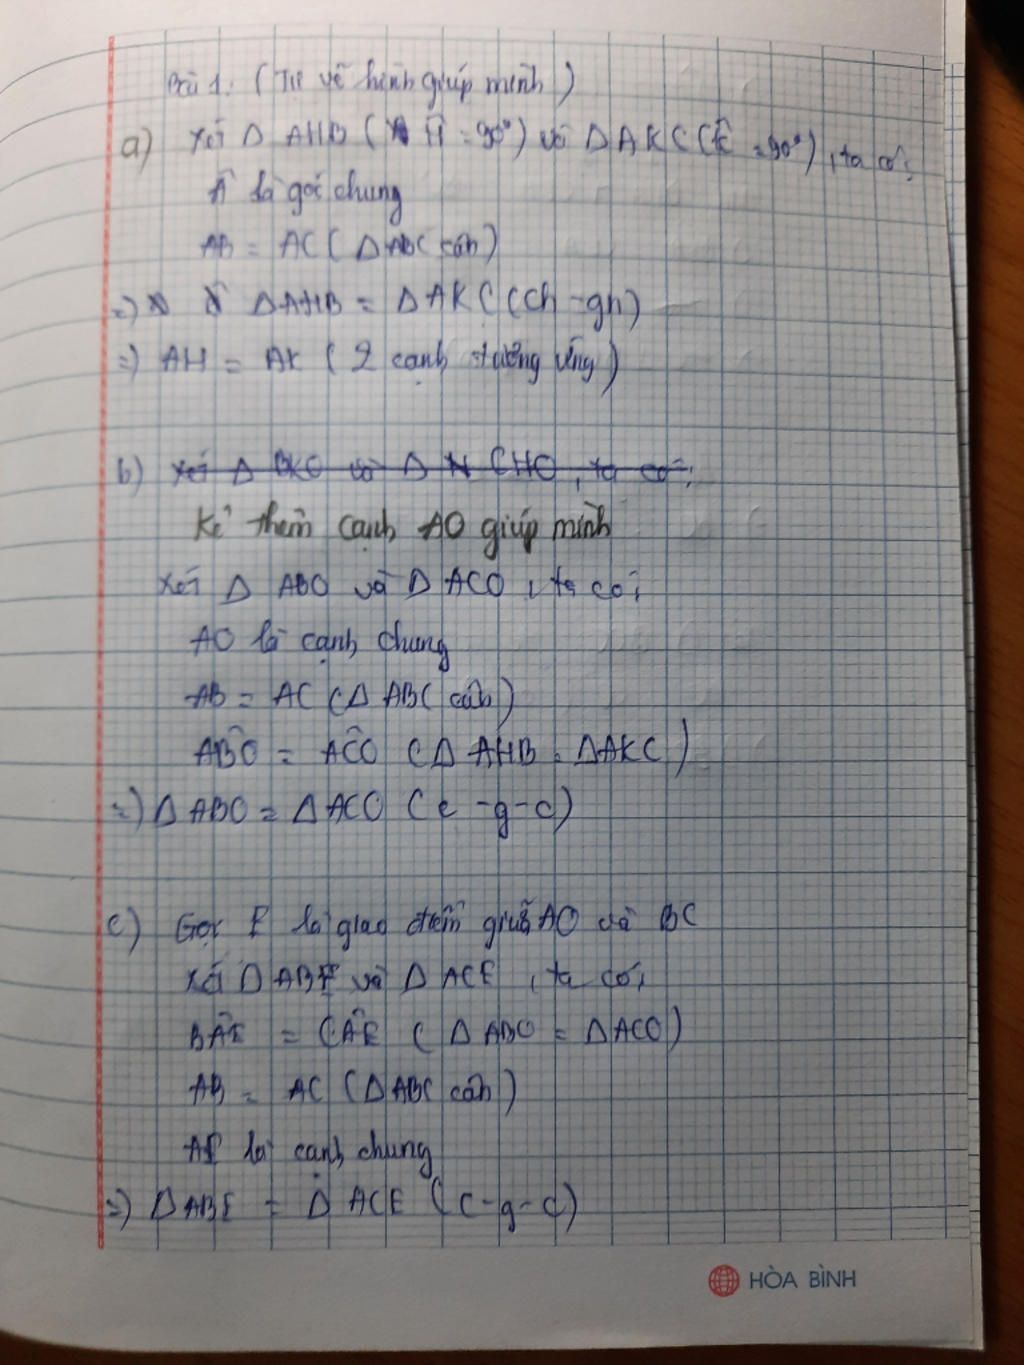 Bài 1: (Tự vẽ hình giúp mình)
a) Xét Δ AHB (Ĥ = 90°) và Δ AKC (K̂ = 90°), ta có:
Â là góc chung
AB = AC (Δ ABC cân)
=) Δ AHB = Δ AKC (ch - gn)
=) AH = AK (2 cạnh tương ứng)
b) Xét Δ BKO và Δ CHO, ta có:
Kẻ thêm cạnh AO giúp mình
Xét Δ ABO và Δ ACO, ta có:
AO là cạnh chung
AB = AC (Δ ABC cân)
AB̂O = AĈO (Δ AHB = Δ AKC)
=) Δ ABO = Δ ACO (c - g - c)
c) Gọi E là giao điểm giữa AO và BC
Xét Δ ABE và Δ ACE, ta có:
BÂE = CÂE (Δ ABO = Δ ACO)
AB = AC (Δ ABC cân)
AE là cạnh chung
=) Δ ABE = Δ ACE (c - g - c)
HÒA BÌNH